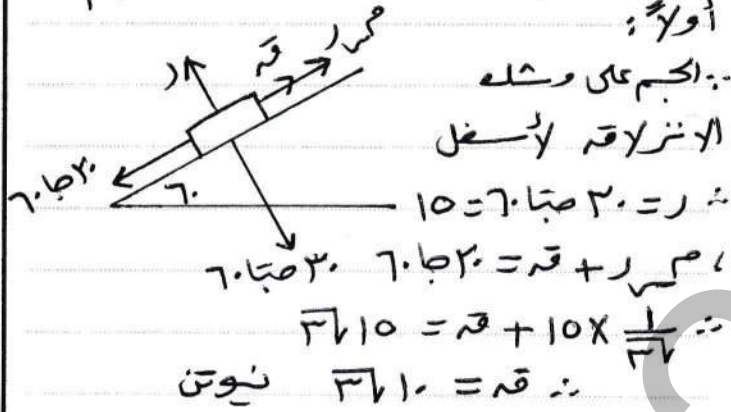 أولاً:
∵ الجسم على وشك
الانزلاق لأسفل
∴ ر = ٣٠ جتا ٦٠ = ١٥
، م س ر + ق = ٣٠ جا ٦٠
∴ ١/√٣ × ١٥ + ق = ١٥√٣
∴ ق = ١٠√٣ نيوتن
م س ر
ق
ر
٣٠ جا ٦٠
٦٠
٣٠ جتا ٦٠